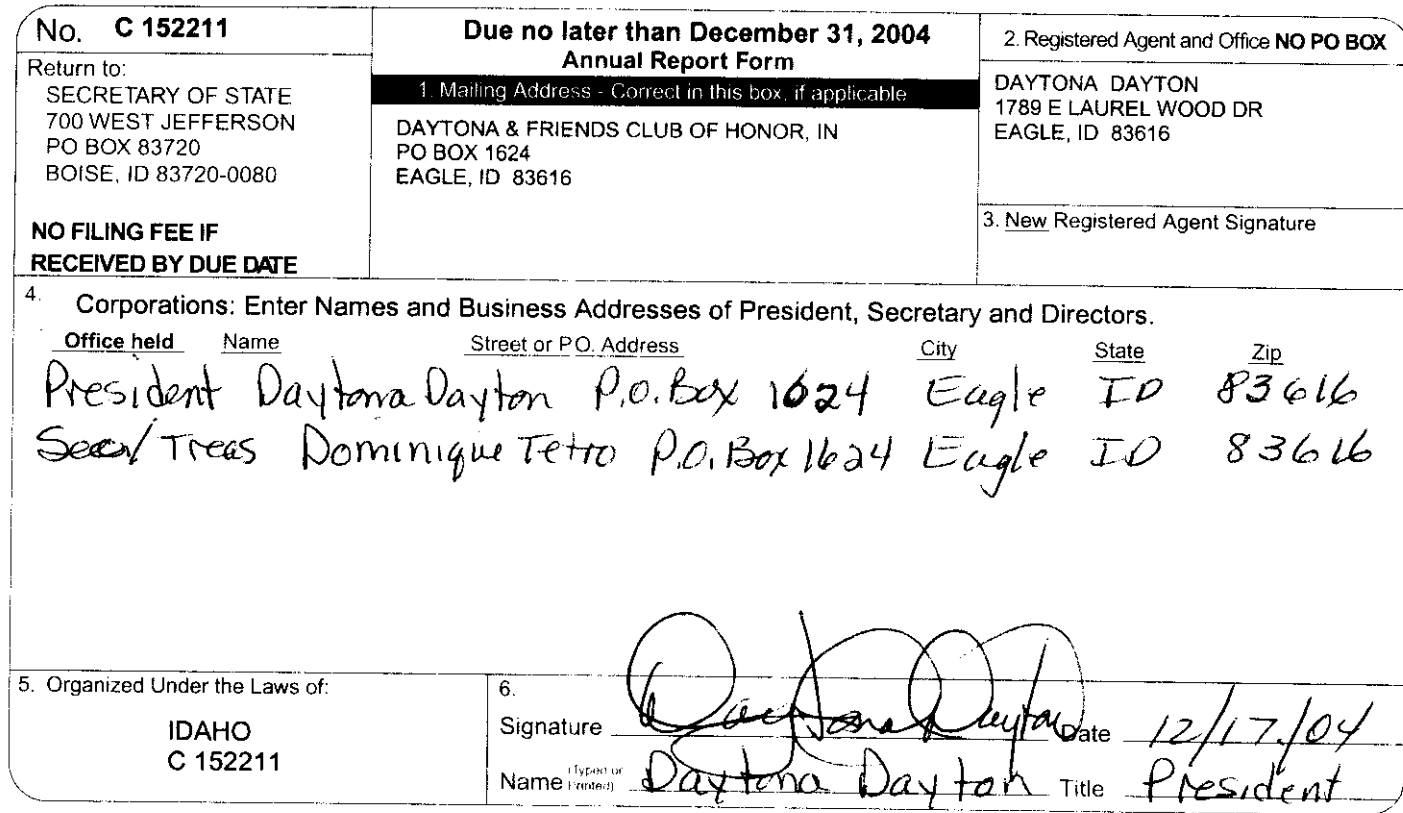 No. C 152211
Return to:
SECRETARY OF STATE
700 WEST JEFFERSON
PO BOX 83720
BOISE, ID 83720-0080
NO FILING FEE IF
RECEIVED BY DUE DATE
Due no later than December 31, 2004
Annual Report Form
1. Mailing Address - Correct in this box, if applicable
DAYTONA & FRIENDS CLUB OF HONOR, IN
PO BOX 1624
EAGLE, ID 83616
2. Registered Agent and Office NO PO BOX
DAYTONA DAYTON
1789 E LAUREL WOOD DR
EAGLE, ID 83616
3. New Registered Agent Signature
4. Corporations: Enter Names and Business Addresses of President, Secretary and Directors.
Office held Name Street or P.O. Address City State Zip
President Daytona Dayton P.O. Box 1624 Eagle ID 83616
Secr/Treas Dominique Tetro P.O. Box 1624 Eagle ID 83616
5. Organized Under the Laws of:
IDAHO
C 152211
6.
Signature Daytona Dayton Date 12/17/04
Name (Typed or Printed) Daytona Dayton Title President